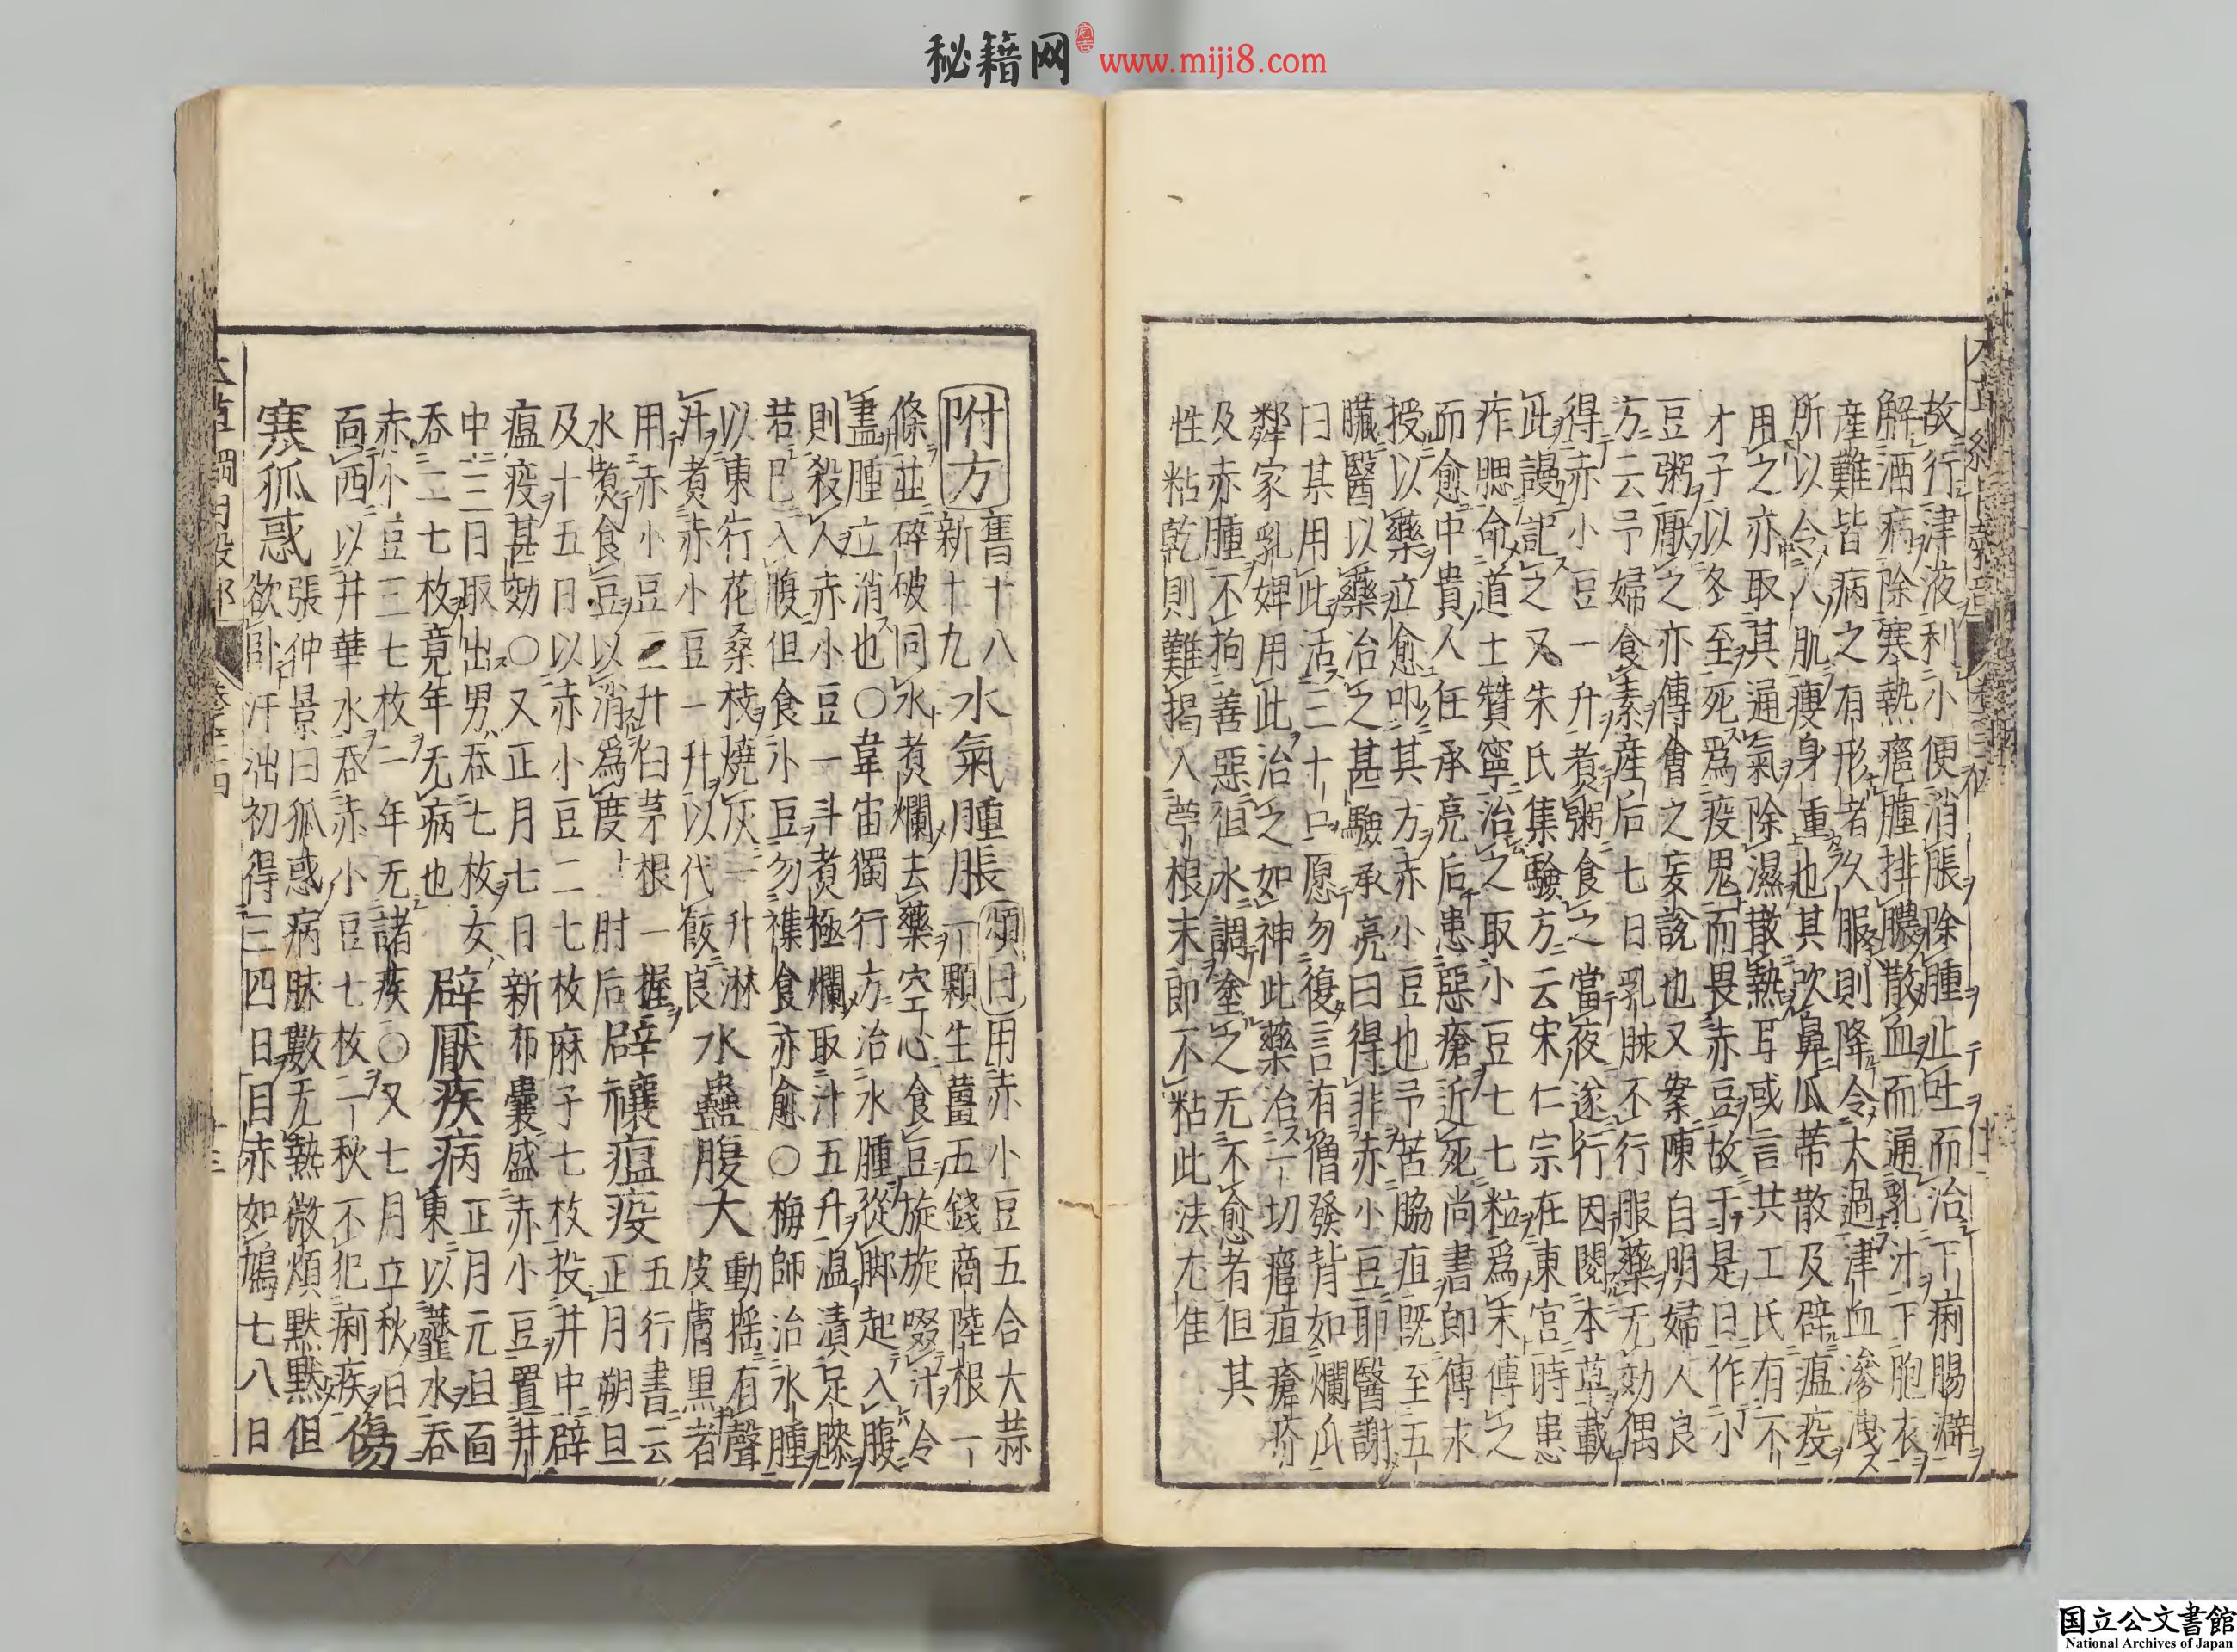 秘籍网 www.miji8.com
故行津液利小便消脹除腫止吐而治下痢腸澼
解酒病除寒熱癰腫排膿散血而通乳汁下胞衣
産難皆病之有形者久服則降令太過津血滲洩
所以令人肌瘦身重也其吹鼻瓜蒂散及辟瘟疫
用之亦取其通氣除濕散熱耳或言共工氏有不
才子以冬至死爲疫鬼而畏赤豆故于是日作小
豆粥厭之亦傅會之妄說也又案陳自明婦人良
方云予婦食素産后七日乳脉不行服藥无効偶
得赤小豆一升煮粥食之當夜遂行因閱本草載
此謾記之又朱氏集驗方云宋仁宗在東宮時患
痄腮命道士贊寧治之取小豆七七粒爲末傅之
而愈中貴人任承亮后患惡瘡近死尚書郎傅求
授以藥立愈叩其方赤小豆也予苦脇疽既至五
臟醫以藥治之甚驗承亮曰得非赤小豆耶醫謝
曰某用此活三十口愿勿復言有僧發背如爛瓜
鄰家乳婢用此治之如神此藥治一切癰疽瘡疥
及赤腫不拘善惡但水調塗之无不愈者但其
性粘乾則難揭入苧根末即不粘此法尤佳
附方 舊十八新十九 水氣腫脹 頌曰用赤小豆五合大蒜
一顆生薑五錢商陸根一
條並碎破同水煮爛去藥空心食豆旋旋啜汁令
盡腫立消也○韋宙獨行方治水腫從脚起入腹
則殺人赤小豆一斗煮極爛取汁五升温漬足膝
若已入腹但食小豆勿襍食亦愈○梅師治水腫
以東行花桑枝燒灰一升淋
升煮赤小豆一升以代飯良 水蠱腹大 動搖有聲
皮膚黒者
用赤小豆三升白茅根一握
水煮食豆以消爲度 肘后 辟禳瘟疫 五行書云
正月朔旦
及十五日以赤小豆二七枚麻子七枚投井中辟
瘟疫甚効○又正月七日新布嚢盛赤小豆置井
中三日取出男吞七枚女
吞二七枚竟年无病也 辟厭疾病 正月元旦面
東以虀水吞
赤小豆三七枚一年无諸疾○又七月立秋日
面西以井華水吞赤小豆七枚一秋不犯痢疾 傷
寒狐惑 張仲景曰狐惑病脉數无熱微煩默默但
欲臥汗出初得三四日目赤如鳩七八日
国立公文書館
National Archives of Japan